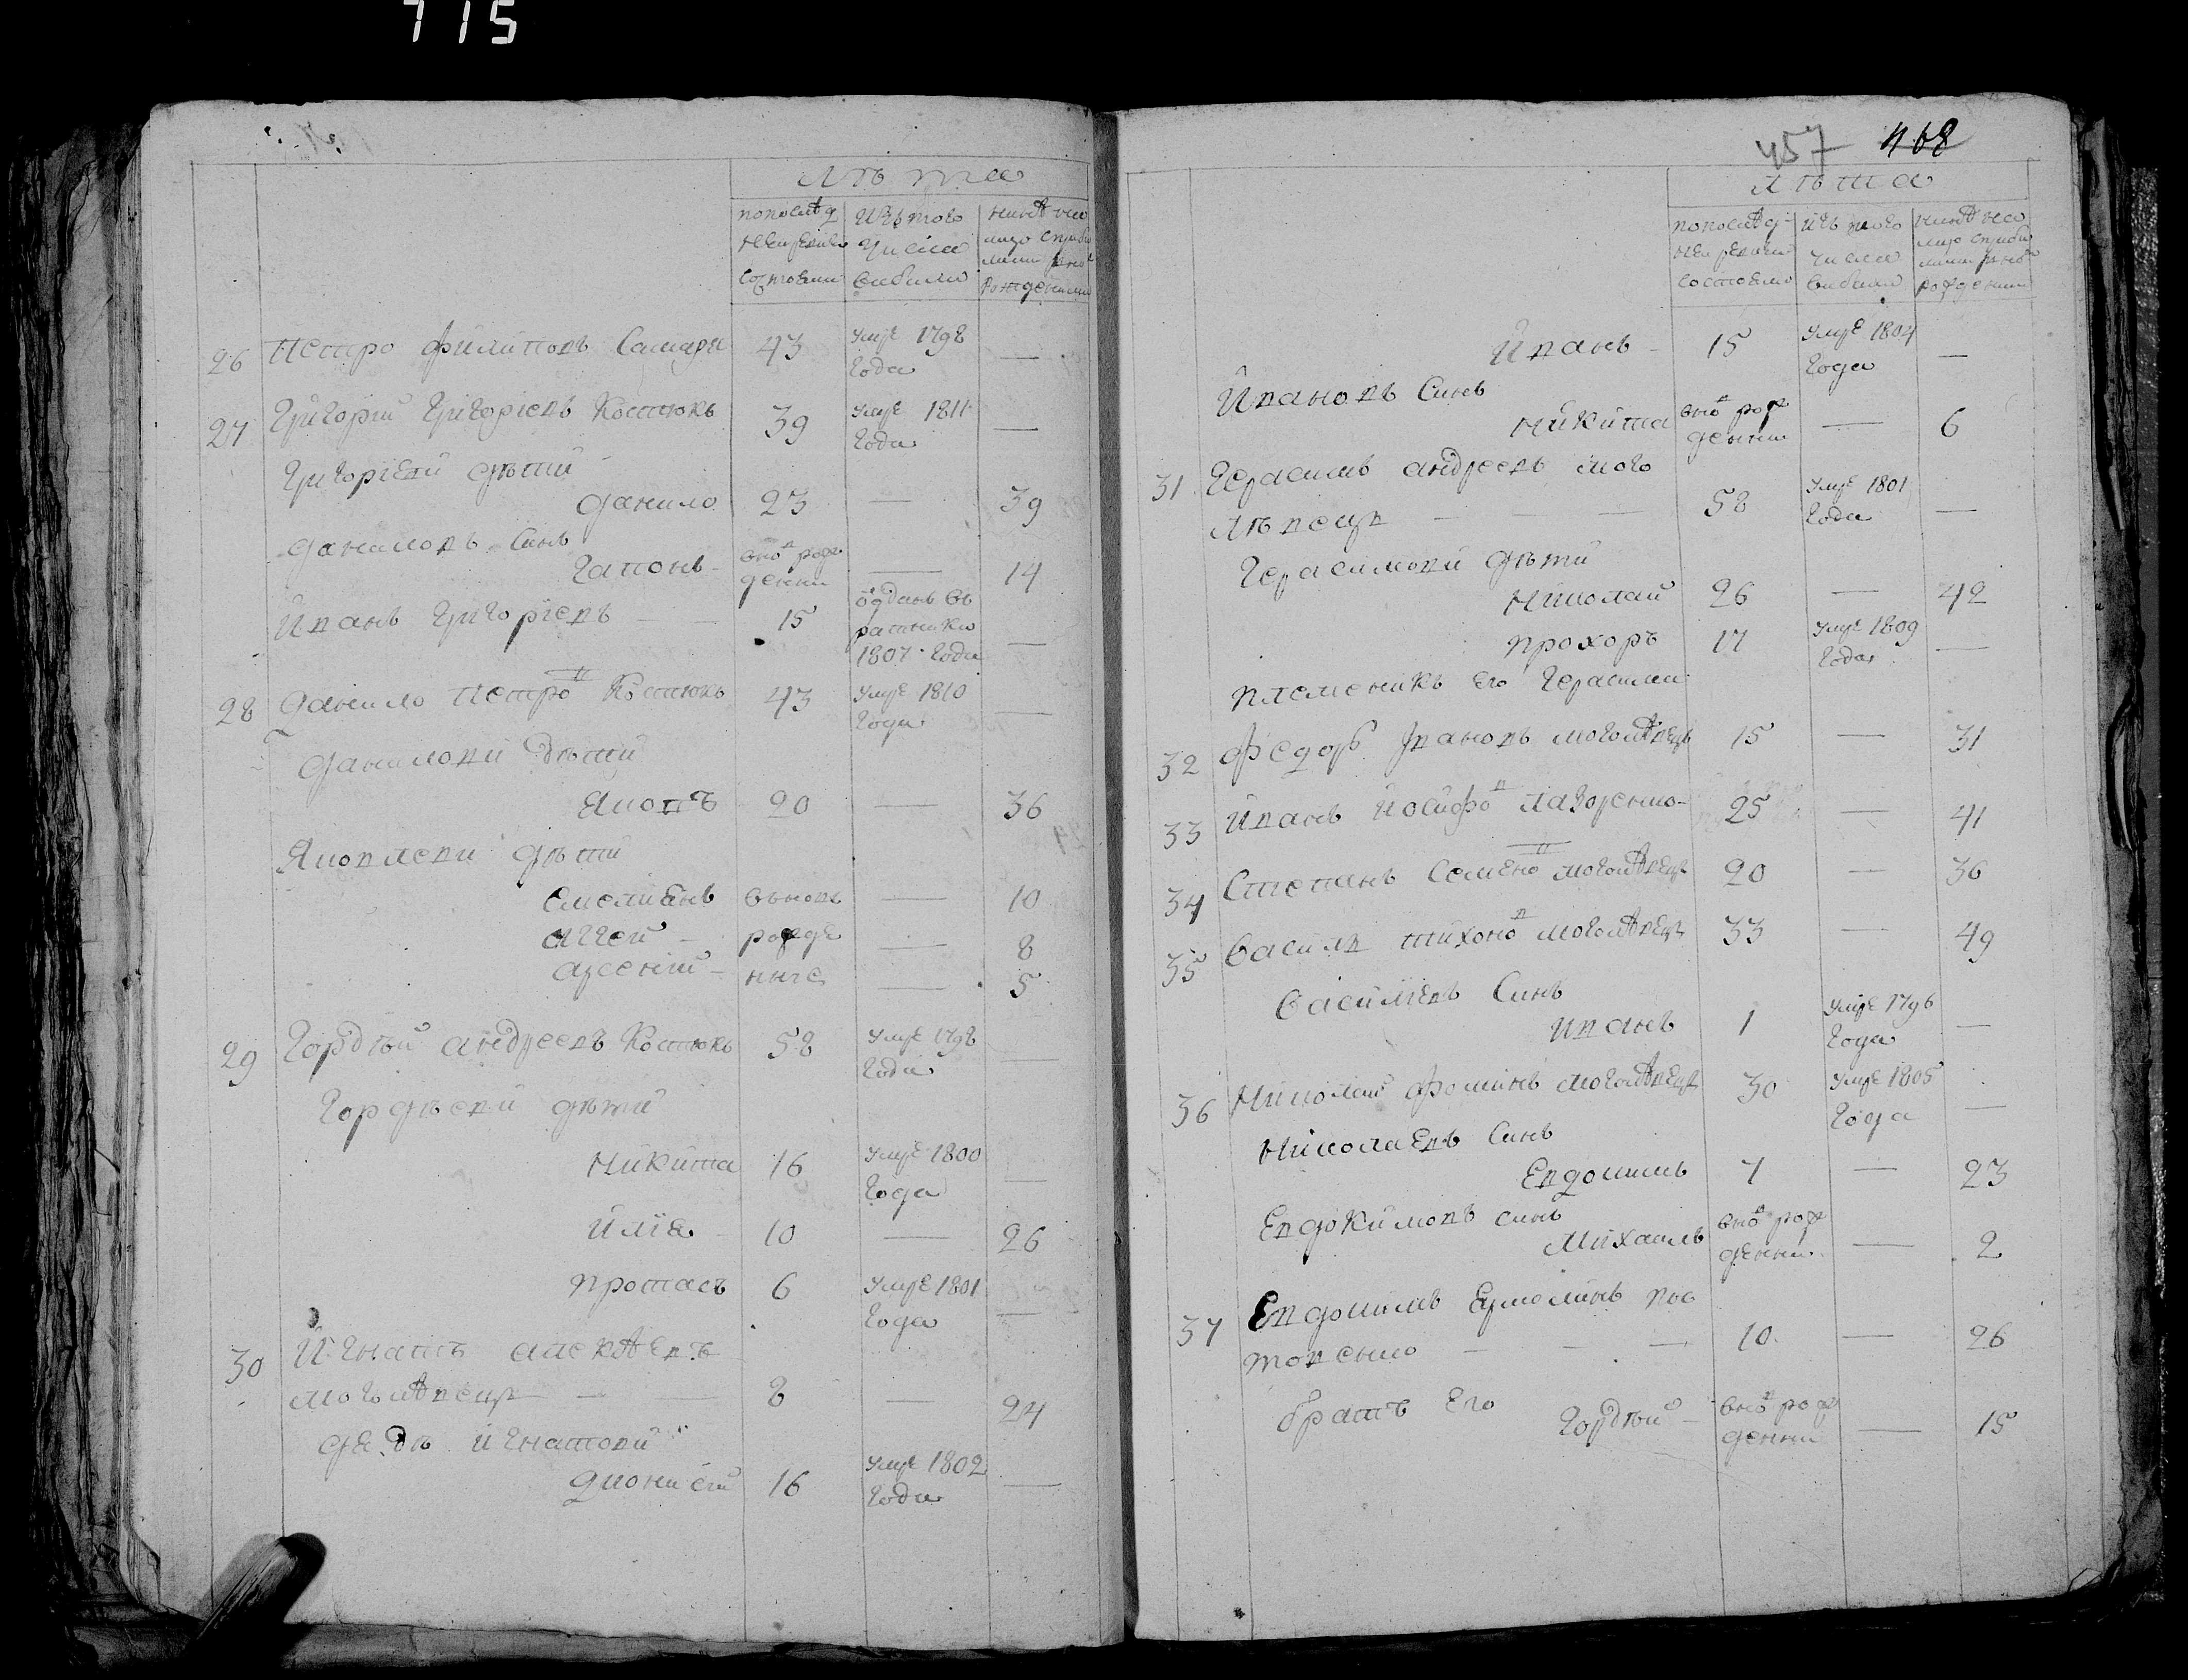 715
Лѣта
по послѣд
ней ревизіи
состояли
Изъ того
числа
выбыли
нынѣ на
лицо
рожденными
26 Петро Филиповъ Самари 43 Умре 1798 —
Года
27 Григорий Григориевъ Костюкъ 39 Умре 1811 —
Года
Григориеви дѣти
Данило 23 — 39
Даниловъ Синъ
Гапонъ вновь рож — 14
денни
Иванъ Григориевъ — — 15 отданъ въ —
ратники
1807 Года
28 Данило Петровъ Костюкъ 43 Умре 1810 —
Года
Данилови дѣти
Яковъ 20 — 36
Яковлеви дѣти
Емелианъ вновь — 10
Аггей — рожде — 8
Арсений — нние — 5
29 Гордѣй Андреевъ Костюкъ 58 Умре 1798 —
Года
Гордѣеви дѣти
Никита 16 Умре 1800 —
Года
Илия 10 — 26
Протасъ 6 Умре 1801 —
Года
30 Игнатъ Алексѣевъ
Моголѣвецъ — — 8 — 24
дядя Игнатови
Дионисий 16 Умре 1802 —
Года
457 468
Лѣта
по послѣд
ней ревизіи
состояло
Изъ того
числа
выбыли
нынѣ на
лицо
рождении
Иванъ — 15 Умре 1804 —
Года
Ивановъ Синъ
Никита вновь рож — 6
денни
31 Герасимъ Андреевъ Мого
лѣвецъ — — — 58 Умре 1801 —
Года
Герасимови дѣти
Николай 26 — 42
Прохоръ 17 Умре 1809 —
Года
Племеникъ Его Герасими
32 Федоръ Ивановъ Моголѣвецъ 15 — 31
33 Иванъ Иосифовъ Лазоренко — 25 — 41
34 Степанъ Семеновъ Моголѣвецъ 20 — 36
35 Василь Тихоновъ Моголѣвецъ 33 — 49
Василиевъ Синъ
Иванъ 1 Умре 1796 —
Года
36 Николай Фоминъ Моголѣвецъ 30 Умре 1805 —
Года
Николаевъ Синъ
Евдокимъ 7 — 23
Евдокимовъ синъ
Михаилъ вновь рож — 2
денни
37 Евдокимъ Ермолинъ Пов
товенко — — — 10 — 26
братъ Его Гордѣй — вновь рож — 15
денни